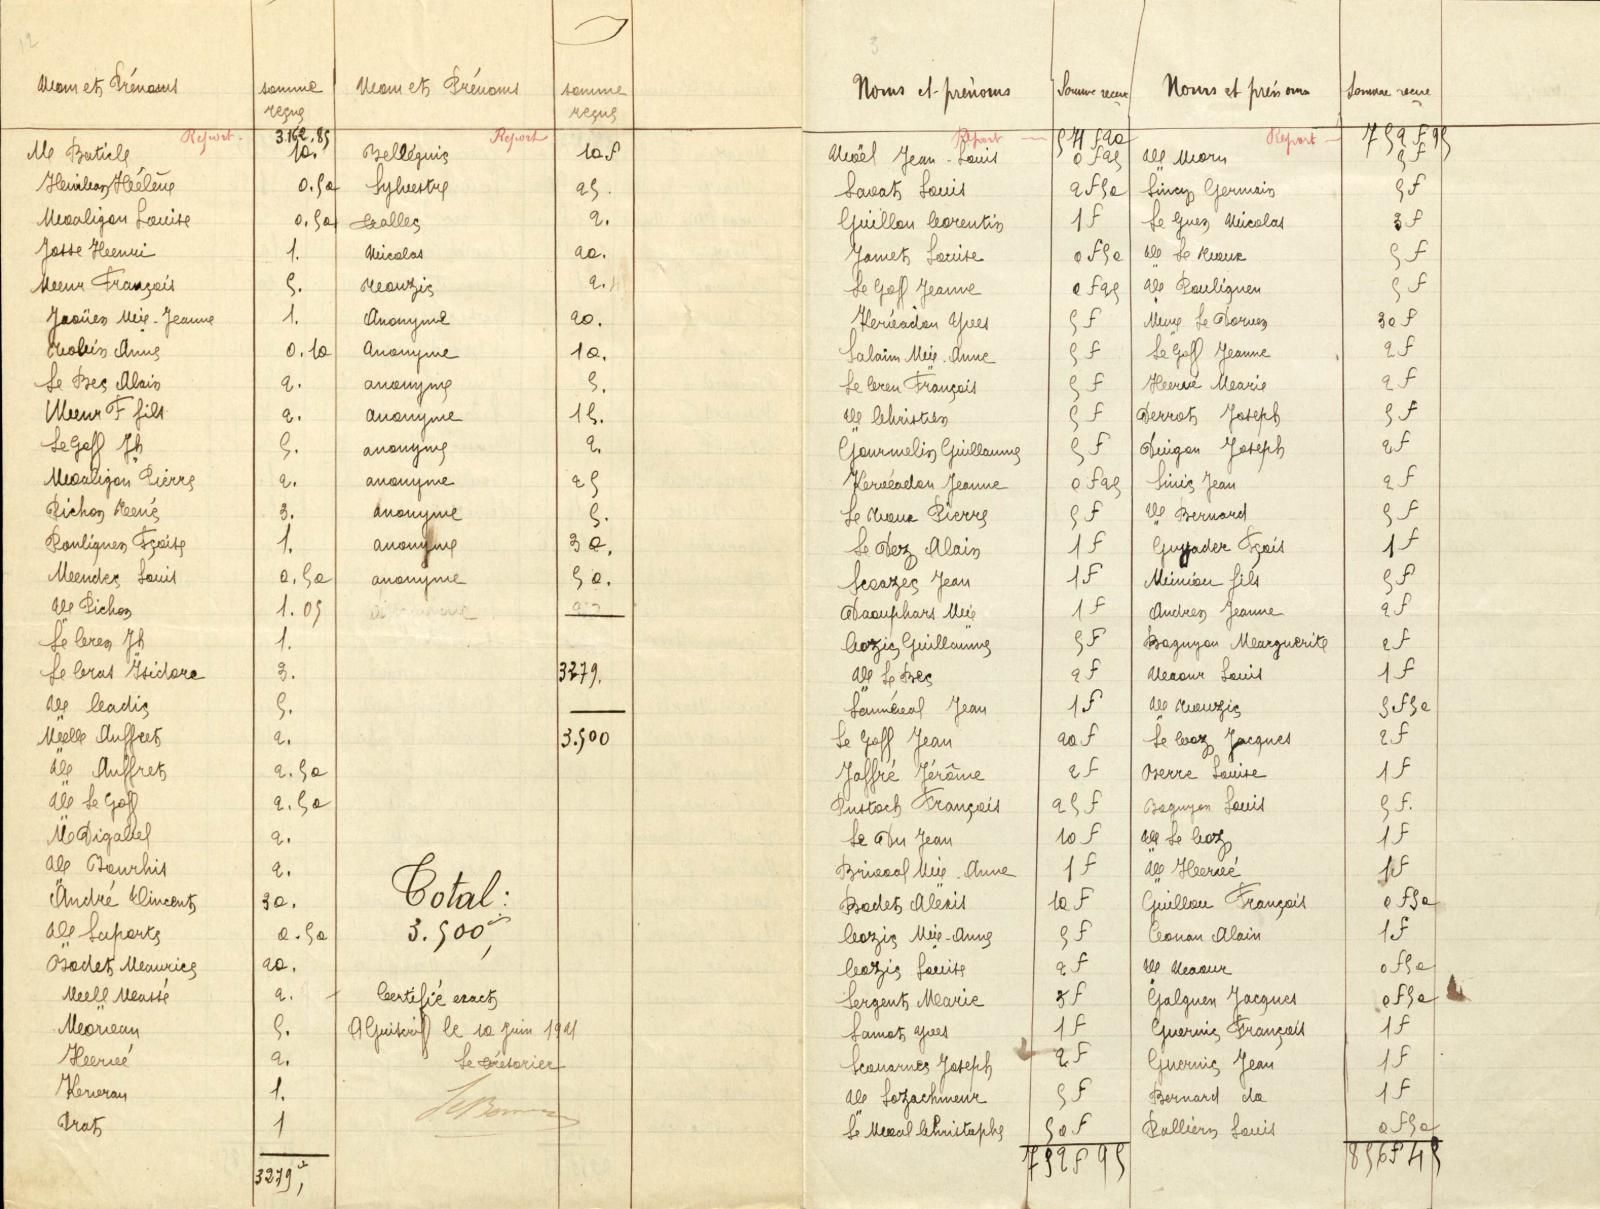 12
Nom et Prénoms somme reçue Nom et Prénoms somme reçue
Report 3.162.85 Report
Me Baticle 10. Belléguic 10 f
Hélène 0.50 Sylvestre 25.
Maaligon Louise 0.50 Salles 2.
Josse Henri 1. Nicolas 20.
Meur François 5. Rouzic 2.
Jaouën Mie-Jeanne 1. Anonyme 20.
Anne 0.10 Anonyme 10.
Le Bec Alain 2. anonyme 5.
Meur F fils 2. anonyme 15.
Le Goff Jh 5. anonyme 2.
Maaligon Pierre 2. anonyme 25
Pichon René 3. anonyme 5.
Pouliquen Fçoise 1. anonyme 30.
Mendec Louis 0.50 anonyme 50.
Me Pichon 1.05
Le Ceren Jh 1.
Le Cras Isidore 3. 3279.
Me Cadic 5.
Melle Auffret 2. 3.500
Me Auffret 2.50
Me Le Goff 2.50
Me Digabel 2.
Me Bourhis 2.
André Vincent 30.
Me Laporte 0.50
Bodet Maurice 20.
Mell Massé 2.
Morvan 5.
Hervé 2.
Kerveran 1.
Prat 1
3279,
Total:
3.500,
Certifié exact
A Guiscriff le 10 juin 1921
Le trésorier
3
Noms et prénoms Somme reçue Noms et prénoms Somme reçue
Report 571 f 20 Report 752 f 95
Noël Jean-Louis 0 f 25 Me Morn 2 f
Savat Louis 2 f 50 Sinic Germain 5 f
Guillou Corentin 1 f Le Guen Nicolas 3 f
Jamet Louise 0 f 50 Me Le Roux 5 f
Le Goff Jeanne 0 f 25 Me Pouliquen 5 f
Kervéadou Yves 5 f Mme Le Dorven 30 f
Salaün Mie-Anne 5 f Le Goff Jeanne 2 f
Le Ceren François 5 f Hervé Marie 2 f
Me Christien 5 f Perrot Joseph 5 f
Gourmelin Guillaume 5 f Guigon Joseph 2 f
Kervéadou Jeanne 0 f 25 Sinic Jean 2 f
Le Roux Pierre 5 f Me Bernard 5 f
Le Dez Alain 1 f Guyader Fçois 1 f
Scoazec Jean 1 f Miniou fils 5 f
Daouphars Mie 1 f Andren Jeanne 2 f
Cozic Guillaume 5 f Boguyon Marguerite 2 f
Me Le Bec 2 f Naour Louis 1 f
Lannéval Jean 1 f Me Rouzic 3 f 50
Le Goff Jean 20 f Le Coz Jacques 2 f
Jaffré Jérôme 2 f Perre Louise 1 f
Pustoch François 25 f Boguyon Louis 5 f.
Le Du Jean 10 f Me Le Coz 1 f
Mie-Anne 1 f Me Hervé 1 f
Bodet Alexis 10 f Guillou François 0 f 50
Cozic Mie-Anne 5 f Conan Alain 1 f
Cozic Louise 2 f Me Naour 0 f 50
Sergent Marie 3 f Galguen Jacques 0 f 50
Samot Yves 1 f Guernic François 1 f
Scouarnec Joseph 2 f Guernic Jean 1 f
Me Lozachmeur 5 f Bernard do 1 f
Le Moal Christophe 50 f Palliern Louis 0 f 50
752 f 95 856 f 45